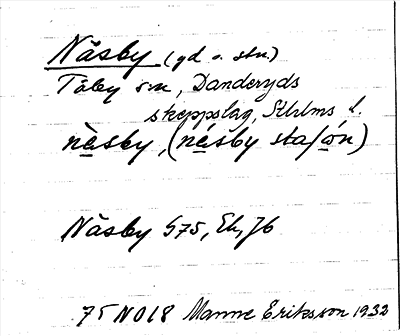 Näsby (gd o. stn.)
Täby sn, Danderyds
skeppslag, Sthlms l.
nèsby, (nésby staʃón)
Näsby G75, Ek, Jb
75 NO18 Manne Eriksson 1932